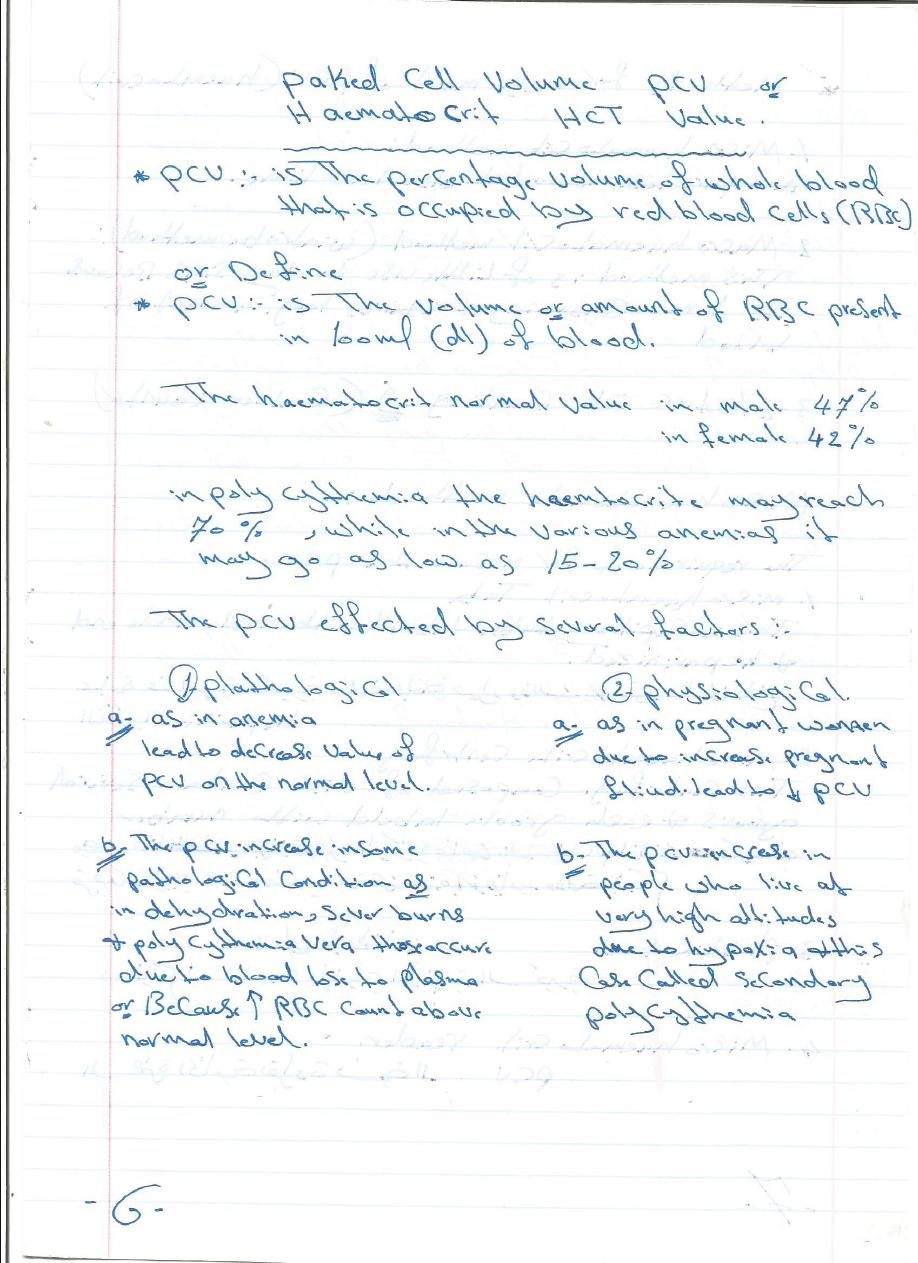 paked Cell Volume PCV or
Haematocrit HCT Value.
* PCV :- is The percentage volume of whole blood
that is occupied by red blood cells (RBC)
or Define
* PCV :- is The Volume or amount of RBC present
in 100ml (dl) of blood.
The haematocrit normal Value in male 47%
in female 42%
in poly cythemia the haemtocrite may reach
70 % , while in the various anemias it
may go as low as 15-20%
The PCV effected by several factors :-
① plathological
a- as in anemia
lead to decrease value of
PCV on the normal level.
b- The pcv increase in some
pathological Condition as
in dehydration, sever burns
+ poly cythemia vera those occure
due to blood lose to plasma
or Because ↑ RBC Count above
normal level.
② physiological.
a- as in pregnant women
due to increase pregnant
fliud. lead to ↓ PCV
b- The pcv increase in
people who live at
very high altitudes
due to hypoxia at this
Case Called Secondary
polycythemia
-6-